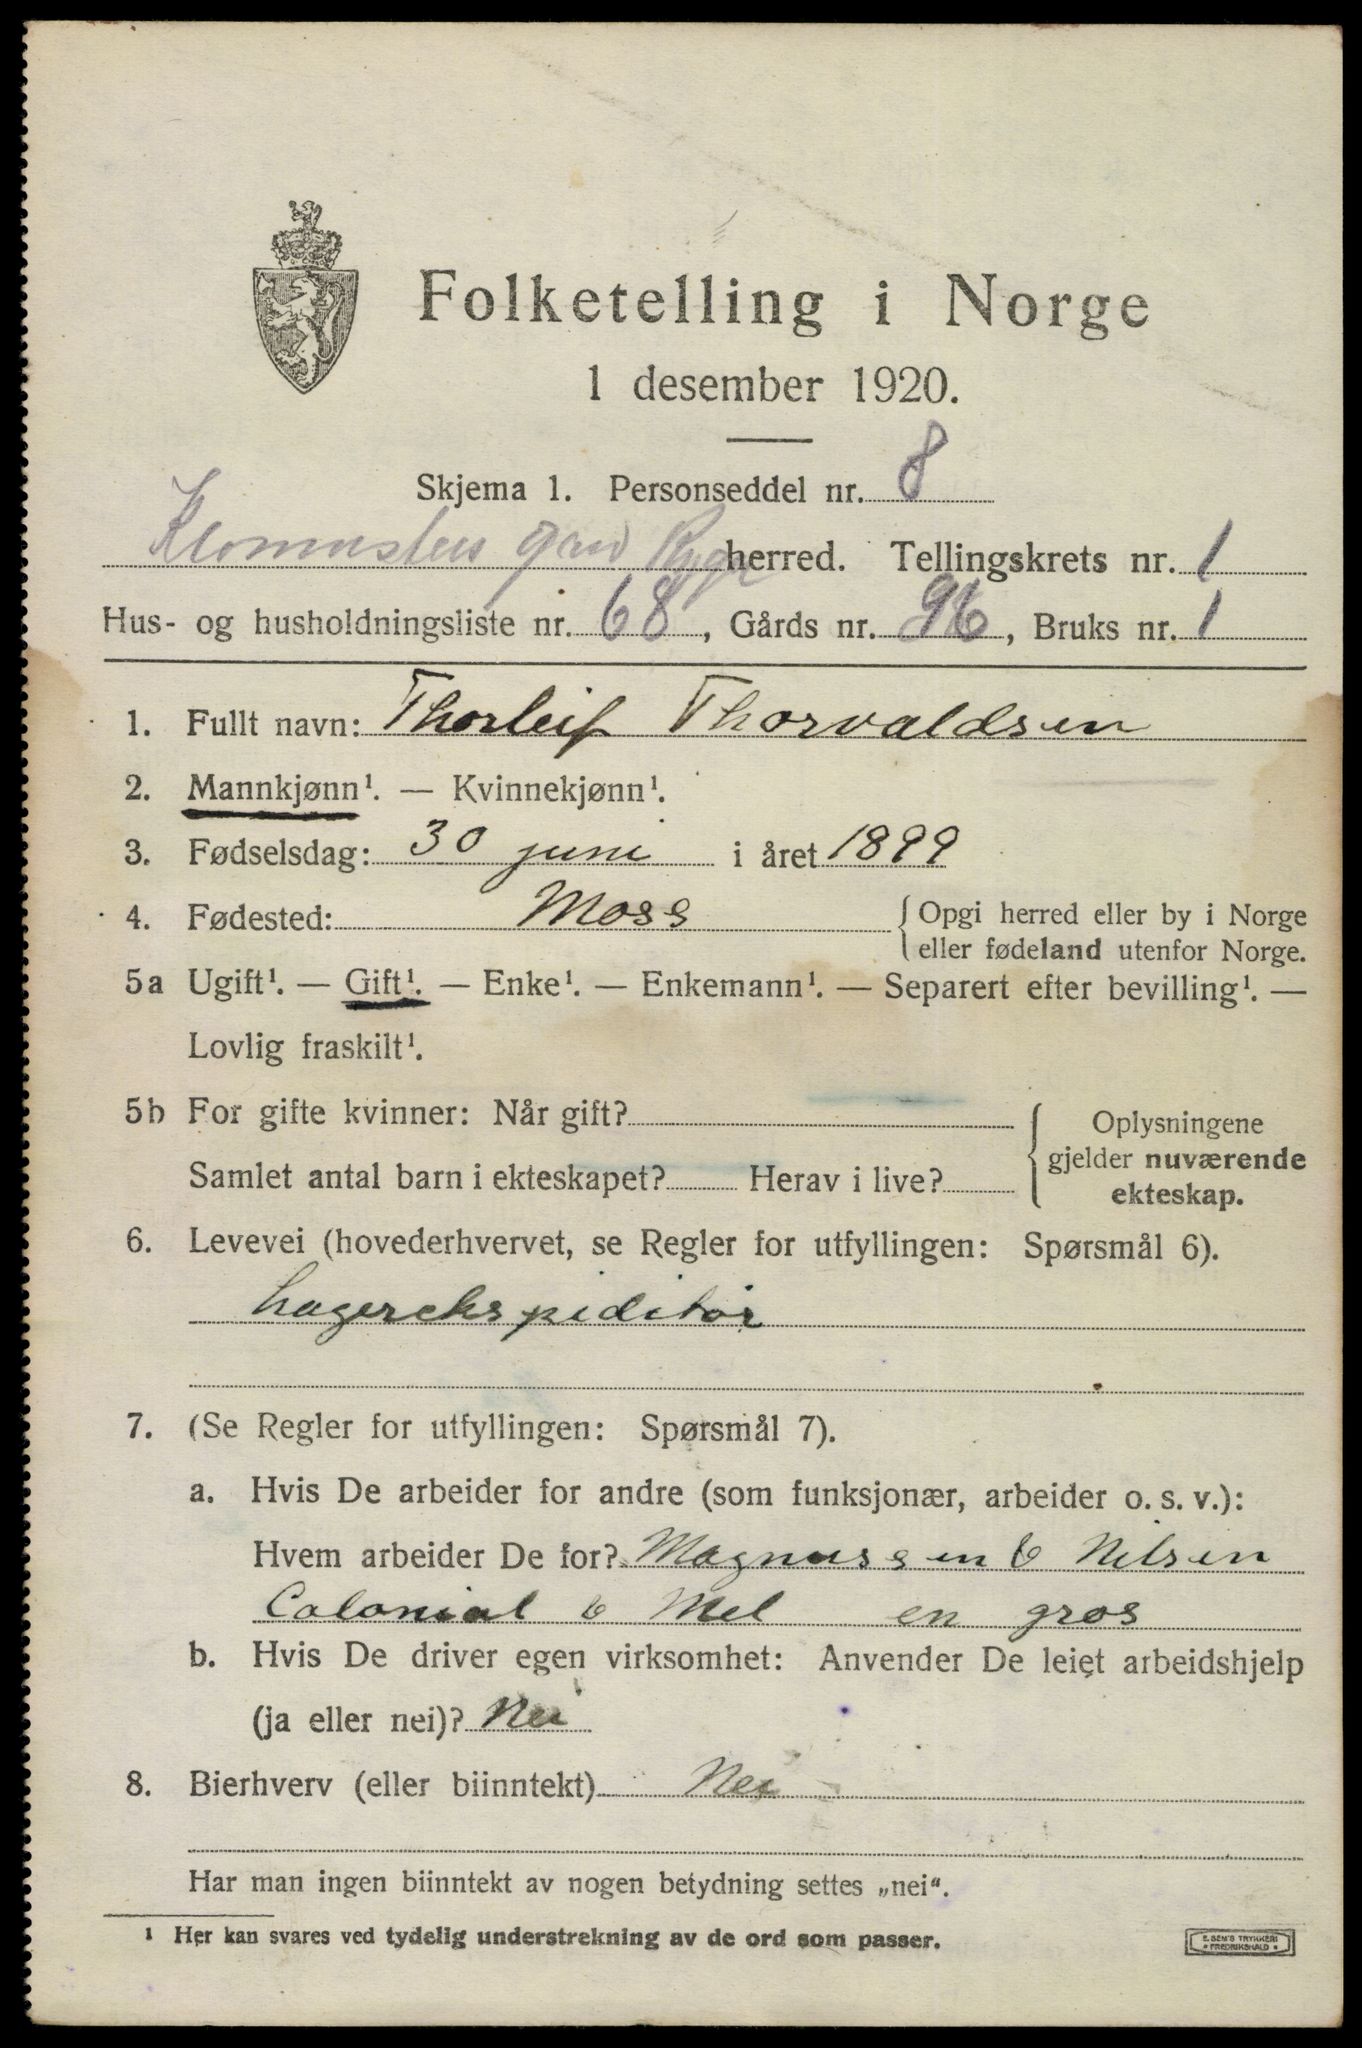 Folketelling i Norge
1 desember 1920.
Skjema 1. Personseddel nr. 8
Rygge herred. Tellingskrets nr. 1
Hus- og husholdningsliste nr. 68, Gårds nr. 96, Bruks nr. 1
1. Fullt navn: Thorleif Thorvaldsen
2. Mannkjønn¹. — Kvinnekjønn¹.
3. Fødselsdag: 30 juni i året 1899
4. Fødested: Moss { Opgi herred eller by i Norge
eller fødeland utenfor Norge.
5a Ugift¹. — Gift¹. — Enke¹. — Enkemann¹. — Separert efter bevilling¹. —
Lovlig fraskilt¹.
5b For gifte kvinner: Når gift?
Samlet antal barn i ekteskapet? Herav i live?
{ Oplysningene
gjelder nuværende
ekteskap.
6. Levevei (hovederhvervet, se Regler for utfyllingen: Spørsmål 6).
Lagerekspiditør
7. (Se Regler for utfyllingen: Spørsmål 7).
a. Hvis De arbeider for andre (som funksjonær, arbeider o. s. v.):
Hvem arbeider De for? Magnussen & Nilsen
Colonial & Mel en gros
b. Hvis De driver egen virksomhet: Anvender De leiet arbeidshjelp
(ja eller nei)? Nei
8. Bierhverv (eller biinntekt) Nei
Har man ingen biinntekt av nogen betydning settes „nei“.
¹ Her kan svares ved tydelig understrekning av de ord som passer.
E. SEM'S TRYKKERI
* FREDRIKSHALD *